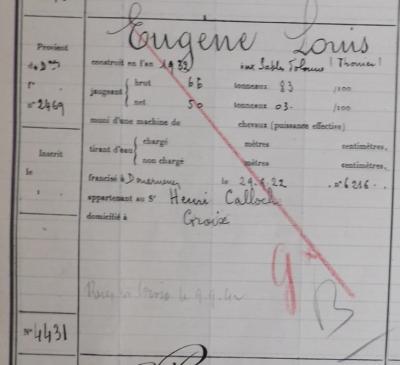 Eugène Louis
Provient
d. Dnz construit en l'an 1922 aux Sables d'Olonne (Thomer)
fo jaugeant { brut 66 tonneaux 83 /100
no 2469 net 50 tonneaux 03 /100
muni d'une machine de chevaux (puissance effective)
tirant d'eau { chargé mètres centimètres.
Inscrit non chargé mètres centimètres.
le francisé à Douarnenez le 29.4.22 no 6216
appartenant au Sr Henri Calloch
domicilié à Groix
g
B
Groix le 9.9.42
No 4431